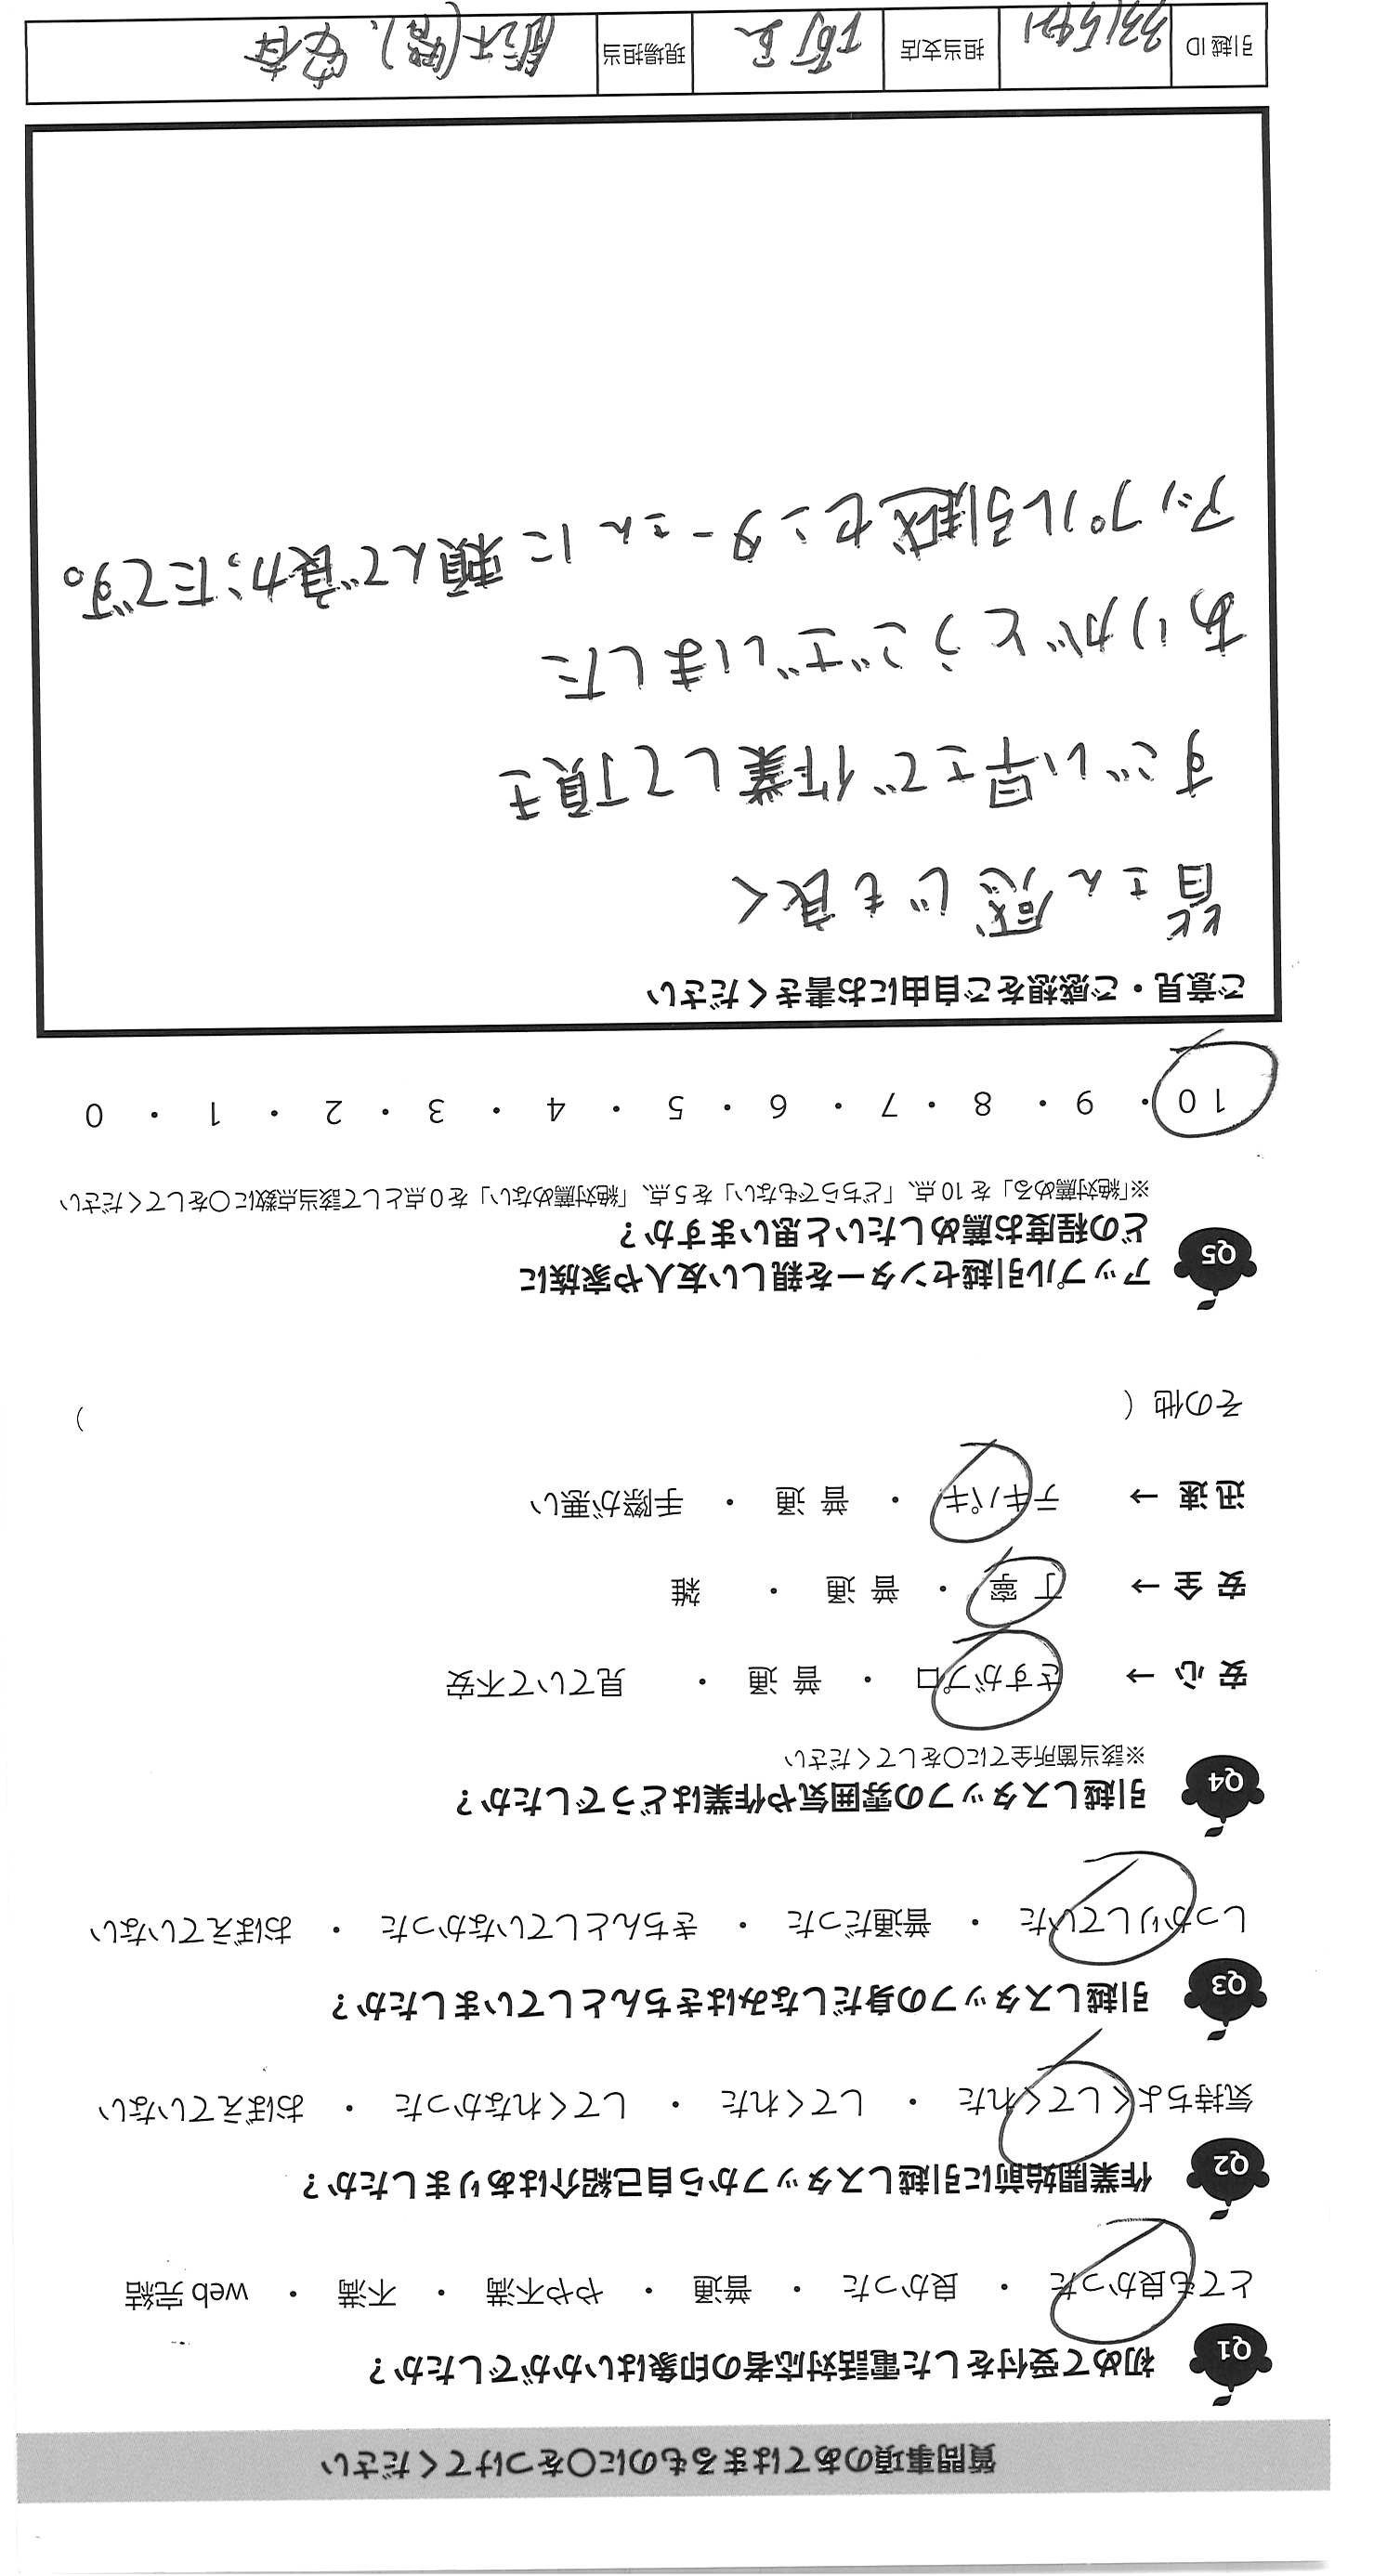 質問事項のあてはまるものに〇をつけてください
Q1 初めて受付をした電話対応者の印象はいかがでしたか?
とても良かった ・ 良かった ・ 普通 ・ やや不満 ・ 不満 ・ web完結
Q2 作業開始前に引越しスタッフから自己紹介はありましたか?
気持ちよくしてくれた ・ してくれた ・ してくれなかった ・ おぼえていない
Q3 引越しスタッフの身だしなみはきちんとしていましたか?
しっかりしていた ・ 普通だった ・ きちんとしていなかった ・ おぼえていない
Q4 引越しスタッフの雰囲気や作業はどうでしたか?
※該当箇所全てに〇をしてください
安心 → さすがプロ ・ 普通 ・ 見ていて不安
安全 → 丁寧 ・ 普通 ・ 雑
迅速 → テキパキ ・ 普通 ・ 手際が悪い
その他 ( )
Q5 アップル引越センターを親しい友人や家族に
どの程度お薦めしたいと思いますか?
※「絶対薦める」を10点、「どちらでもない」を5点、「絶対薦めない」を0点として該当点数に〇をしてください
10 ・ 9 ・ 8 ・ 7 ・ 6 ・ 5 ・ 4 ・ 3 ・ 2 ・ 1 ・ 0
ご意見・ご感想をご自由にお書きください
皆さん感じも良く
すごい早さで作業して頂き
ありがとうございました
アップル引越センターさんに頼んで良かったです。
引越ID 担当支店 現場担当